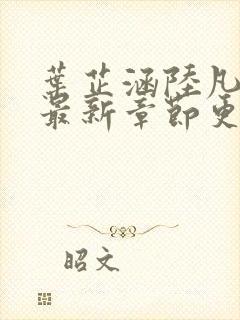 葉芷涵陸凡
最新章節更
昭文